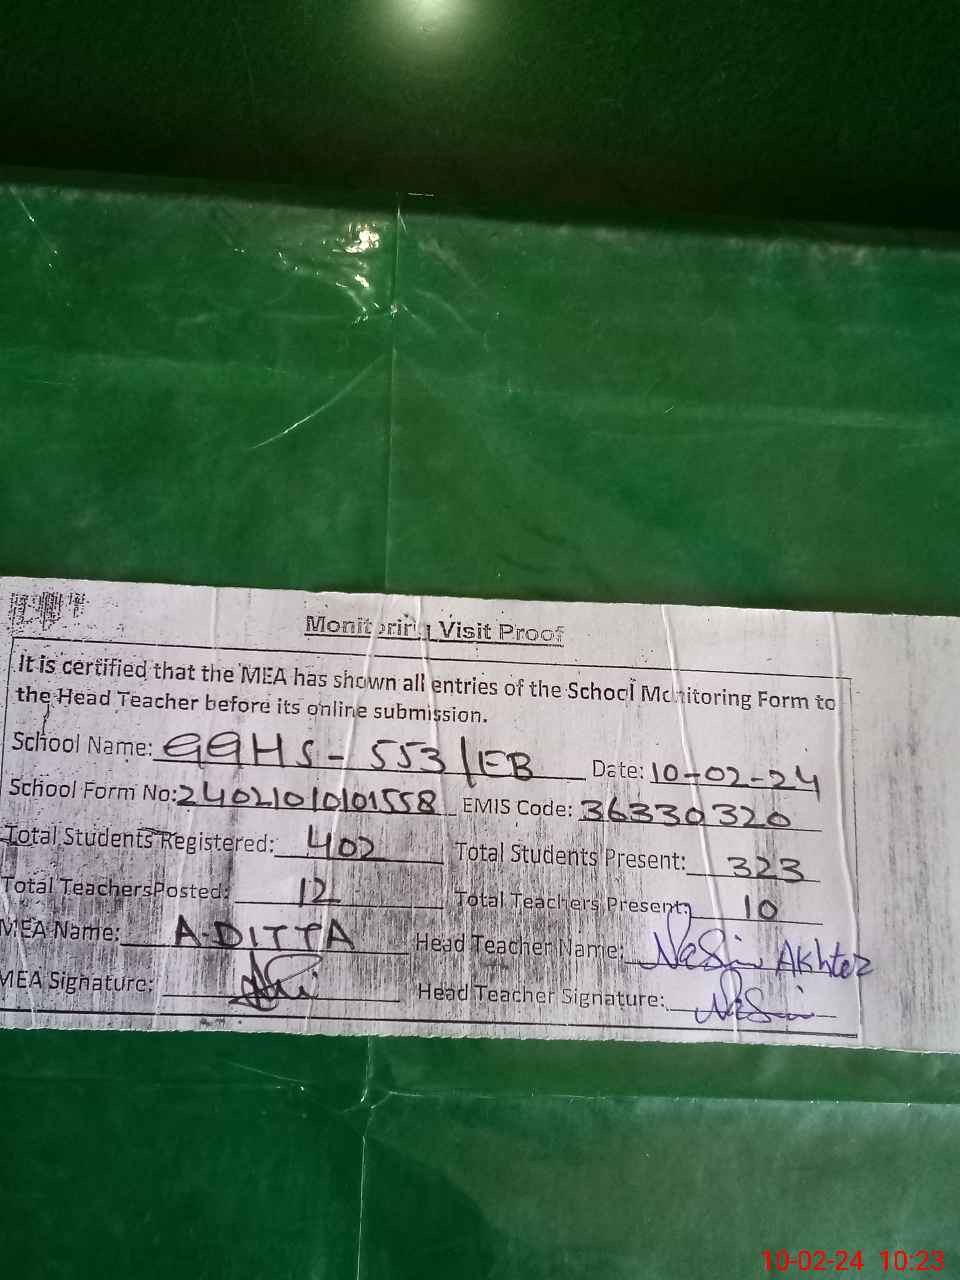 Monitoring Visit Proof
It is certified that the MEA has shown all entries of the School Monitoring Form to
the Head Teacher before its online submission.
School Name: GGHS - 553/EB Date: 10-02-24
School Form No: 24021010101558 EMIS Code: 36330320
Total Students Registered: 402 Total Students Present: 323
Total TeachersPosted: 12 Total Teachers Present: 10
MEA Name: A-DITTA Head Teacher Name: Nasim Akhter
MEA Signature: Head Teacher Signature: Nasim
10-02-24 10:23